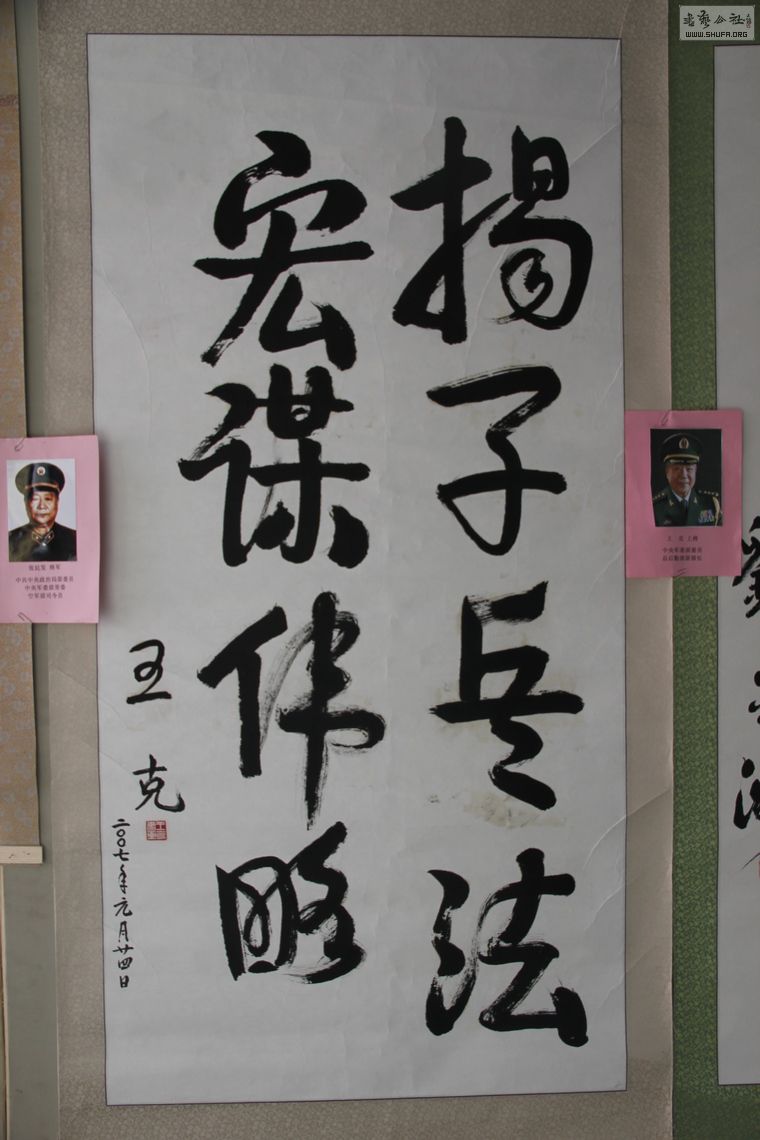 揭子兵法
宏谋伟略
王克
二〇〇七年元月廿四日
王 克 上将
中央军委原委员
总后勤部原部长
张廷发 将军
中共中央政治局原委员
中央军委原常委
空军原司令员
書藝公社
WWW.SHUFA.ORG